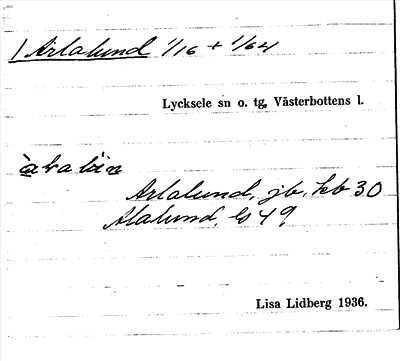 1 Arlalund 1/16 + 1/64
Lycksele sn o. tg, Västerbottens l.
Arlalund, jb, hb 30
Alalund, ls 49
Lisa Lidberg 1936.